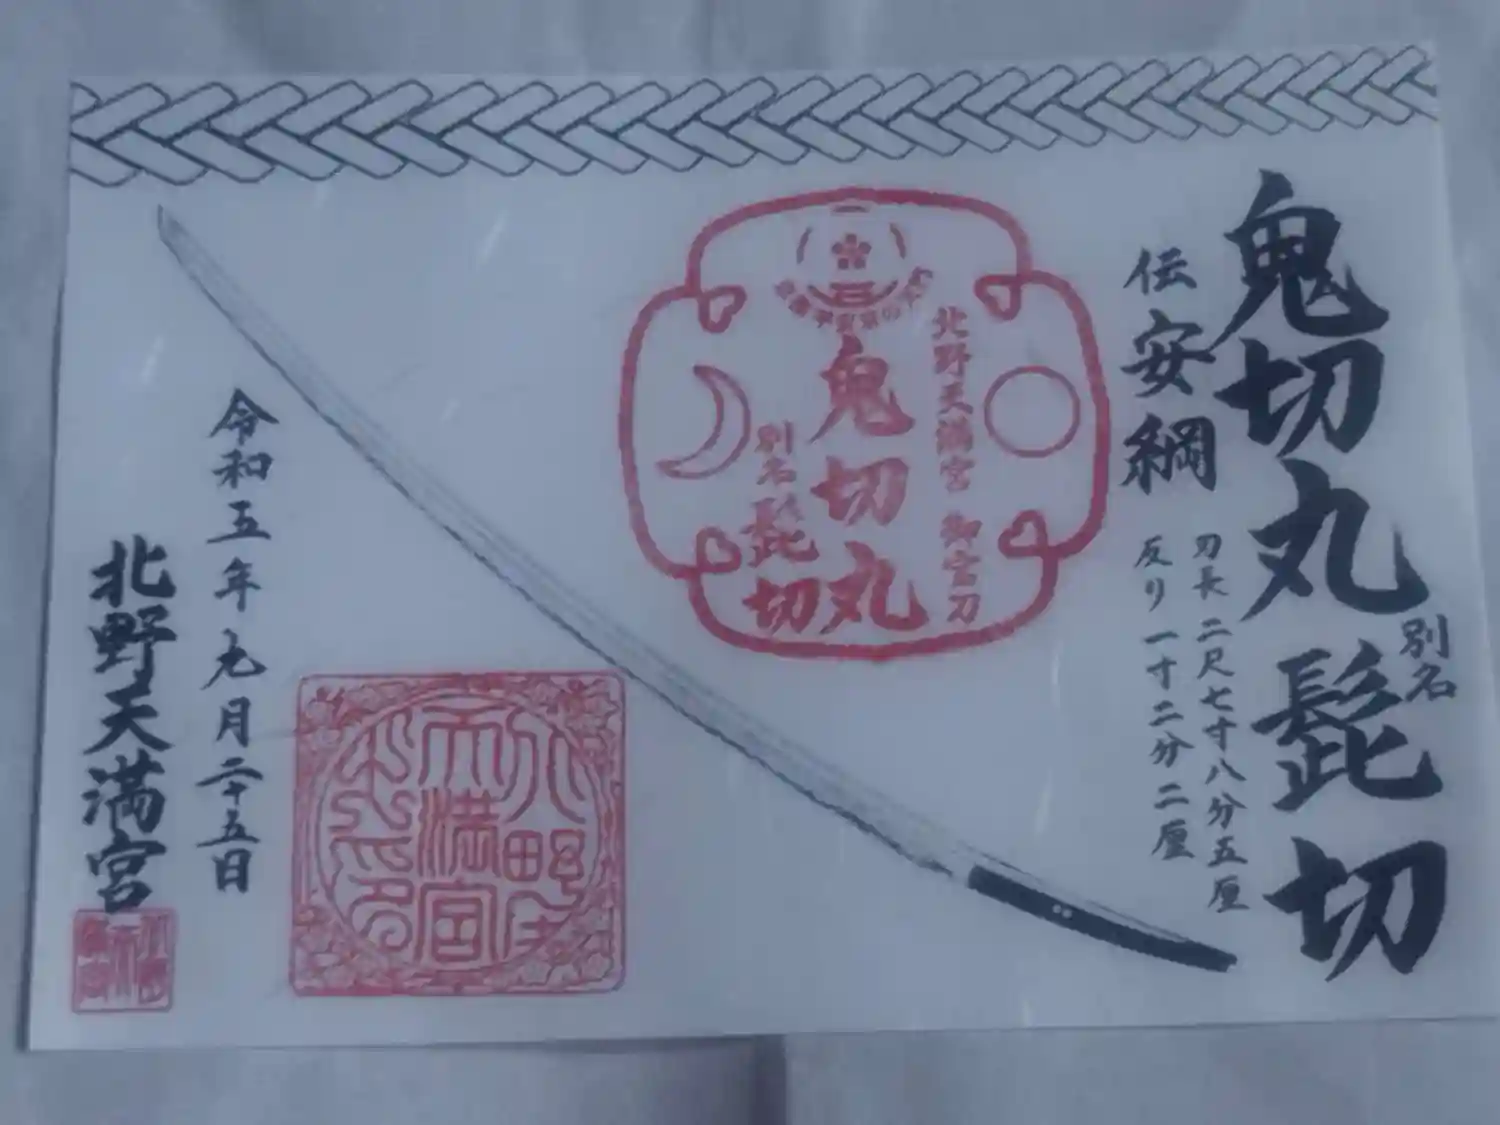 鬼切丸 別名 髭切
伝安綱
刃長 二尺七寸八分五厘
反り 一寸二分二厘
北野天満宮 御宮刀
鬼切丸
別名 髭切
令和五年九月二十五日
北野天満宮
天満宮